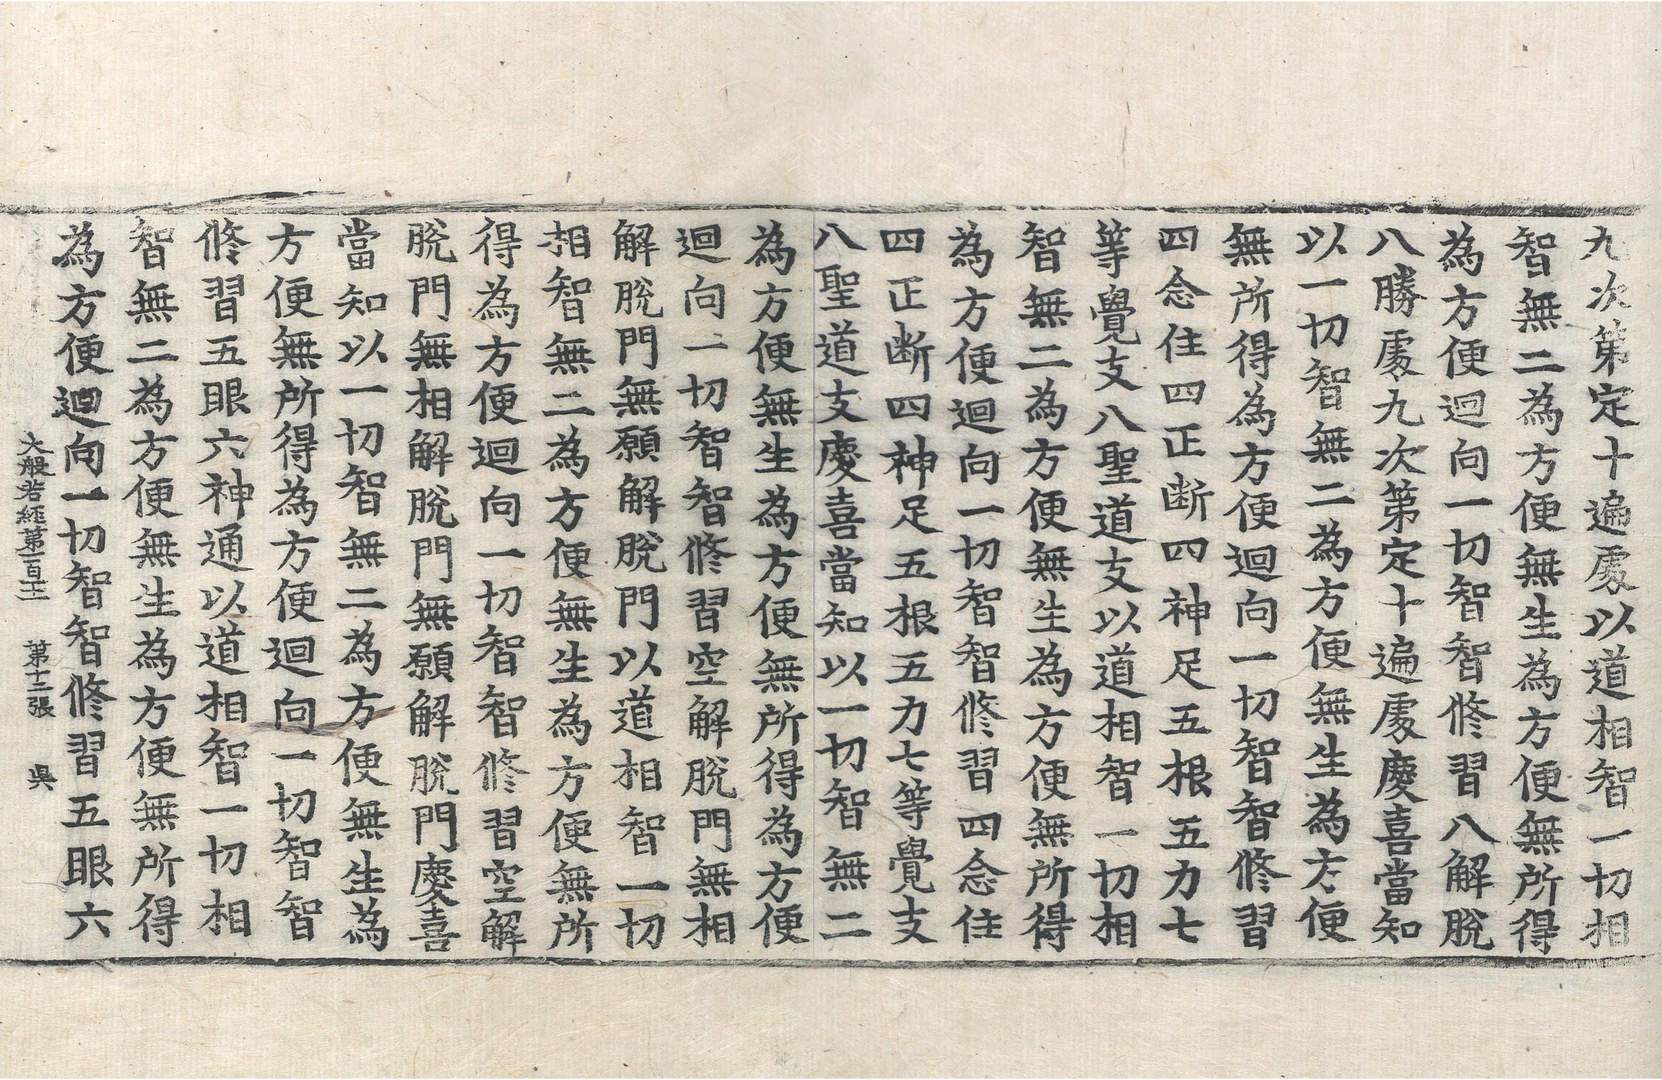 九次第定十遍處以道相智一切相
智無二為方便無生為方便無所得
為方便迴向一切智智修習八解脫
八勝處九次第定十遍處慶喜當知
以一切智無二為方便無生為方便
無所得為方便迴向一切智智修習
四念住四正断四神足五根五力七
等覺支八聖道支以道相智一切相
智無二為方便無生為方便無所得
為方便迴向一切智智修習四念住
四正断四神足五根五力七等覺支
八聖道支慶喜當知以一切智無二
為方便無生為方便無所得為方便
迴向一切智智修習空解脫門無相
解脫門無願解脫門以道相智一切
相智無二為方便無生為方便無所
得為方便迴向一切智智修習空解
脫門無相解脫門無願解脫門慶喜
當知以一切智無二為方便無生為
方便無所得為方便迴向一切智智
修習五眼六神通以道相智一切相
智無二為方便無生為方便無所得
大般若經第一百十二 第十二張 昃
為方便迴向一切智智修習五眼六